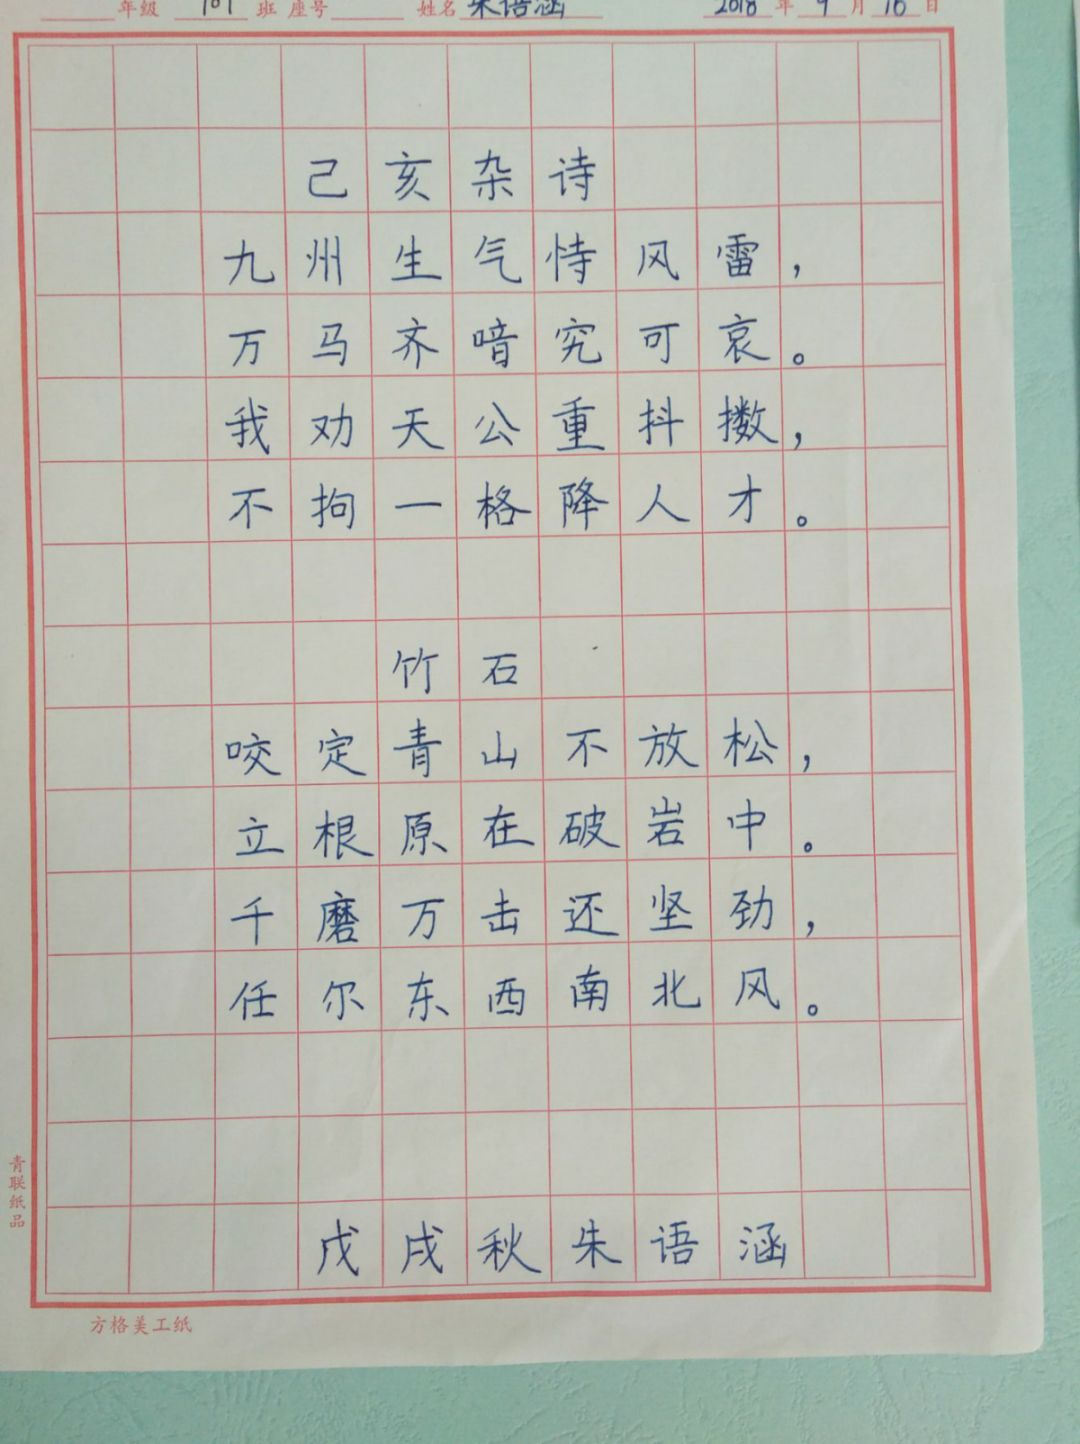 年级 101 班 座号 姓名 朱语涵 2018 年 9 月 16 日
己亥杂诗
九州生气恃风雷，
万马齐喑究可哀。
我劝天公重抖擞，
不拘一格降人才。
竹石
咬定青山不放松，
立根原在破岩中。
千磨万击还坚劲，
任尔东西南北风。
戊戌秋朱语涵
青联纸品
方格美工纸